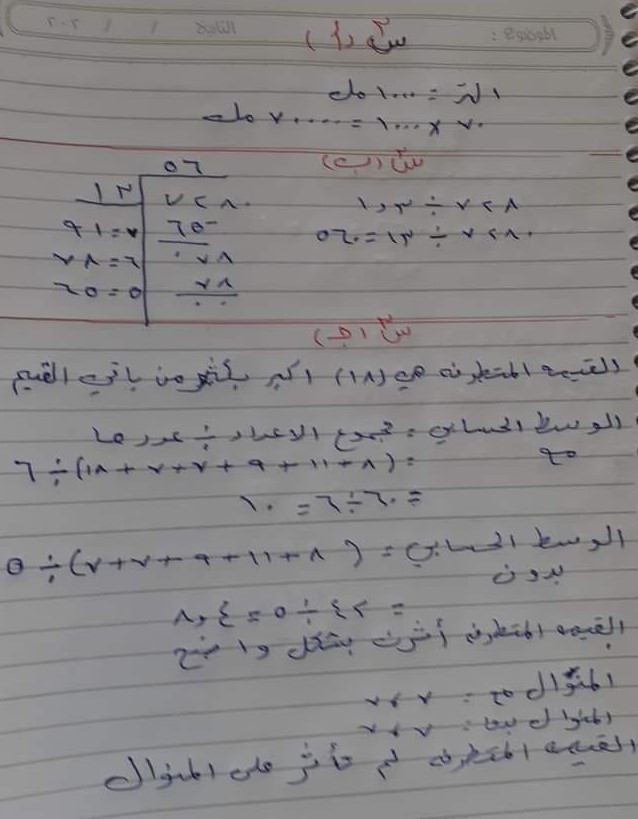 الموضوع : التاريخ / / ٢٠٢
س٣ (أ)
التر = ١٠٠٠ مل
٧٠ × ١٠٠٠ = ٧٠٠٠٠ مل
س٣ (ب)
٧٢٨ ÷ ١٣
٧٢٨٠ ÷ ١٣ = ٥٦٠
٥٦
١٣ ٧٢٨٠
٩١ = ٧ ٦٥-
٧٨ = ٦ ٠٧٨
٦٥ = ٥ ٧٨
٠٠
س٣ (جـ)
القيمة المتطرفة هي (١٨) اكبر بكثير من باقي القيم
الوسط الحسابي = مجموع الاعداد ÷ عددها
مع = (٨ + ١١ + ٩ + ٧ + ٧ + ١٨) ÷ ٦
= ٦٠ ÷ ٦ = ١٠
الوسط الحسابي = (٨ + ١١ + ٩ + ٧ + ٧) ÷ ٥
بدون
= ٤٢ ÷ ٥ = ٨,٤
القيمة المتطرفة أثرت بشكل واضح
المنوال مع : ٧ ، ٧
المنوال : ٧ ، ٧
القيمة المتطرفة لم تأثر على المنوال